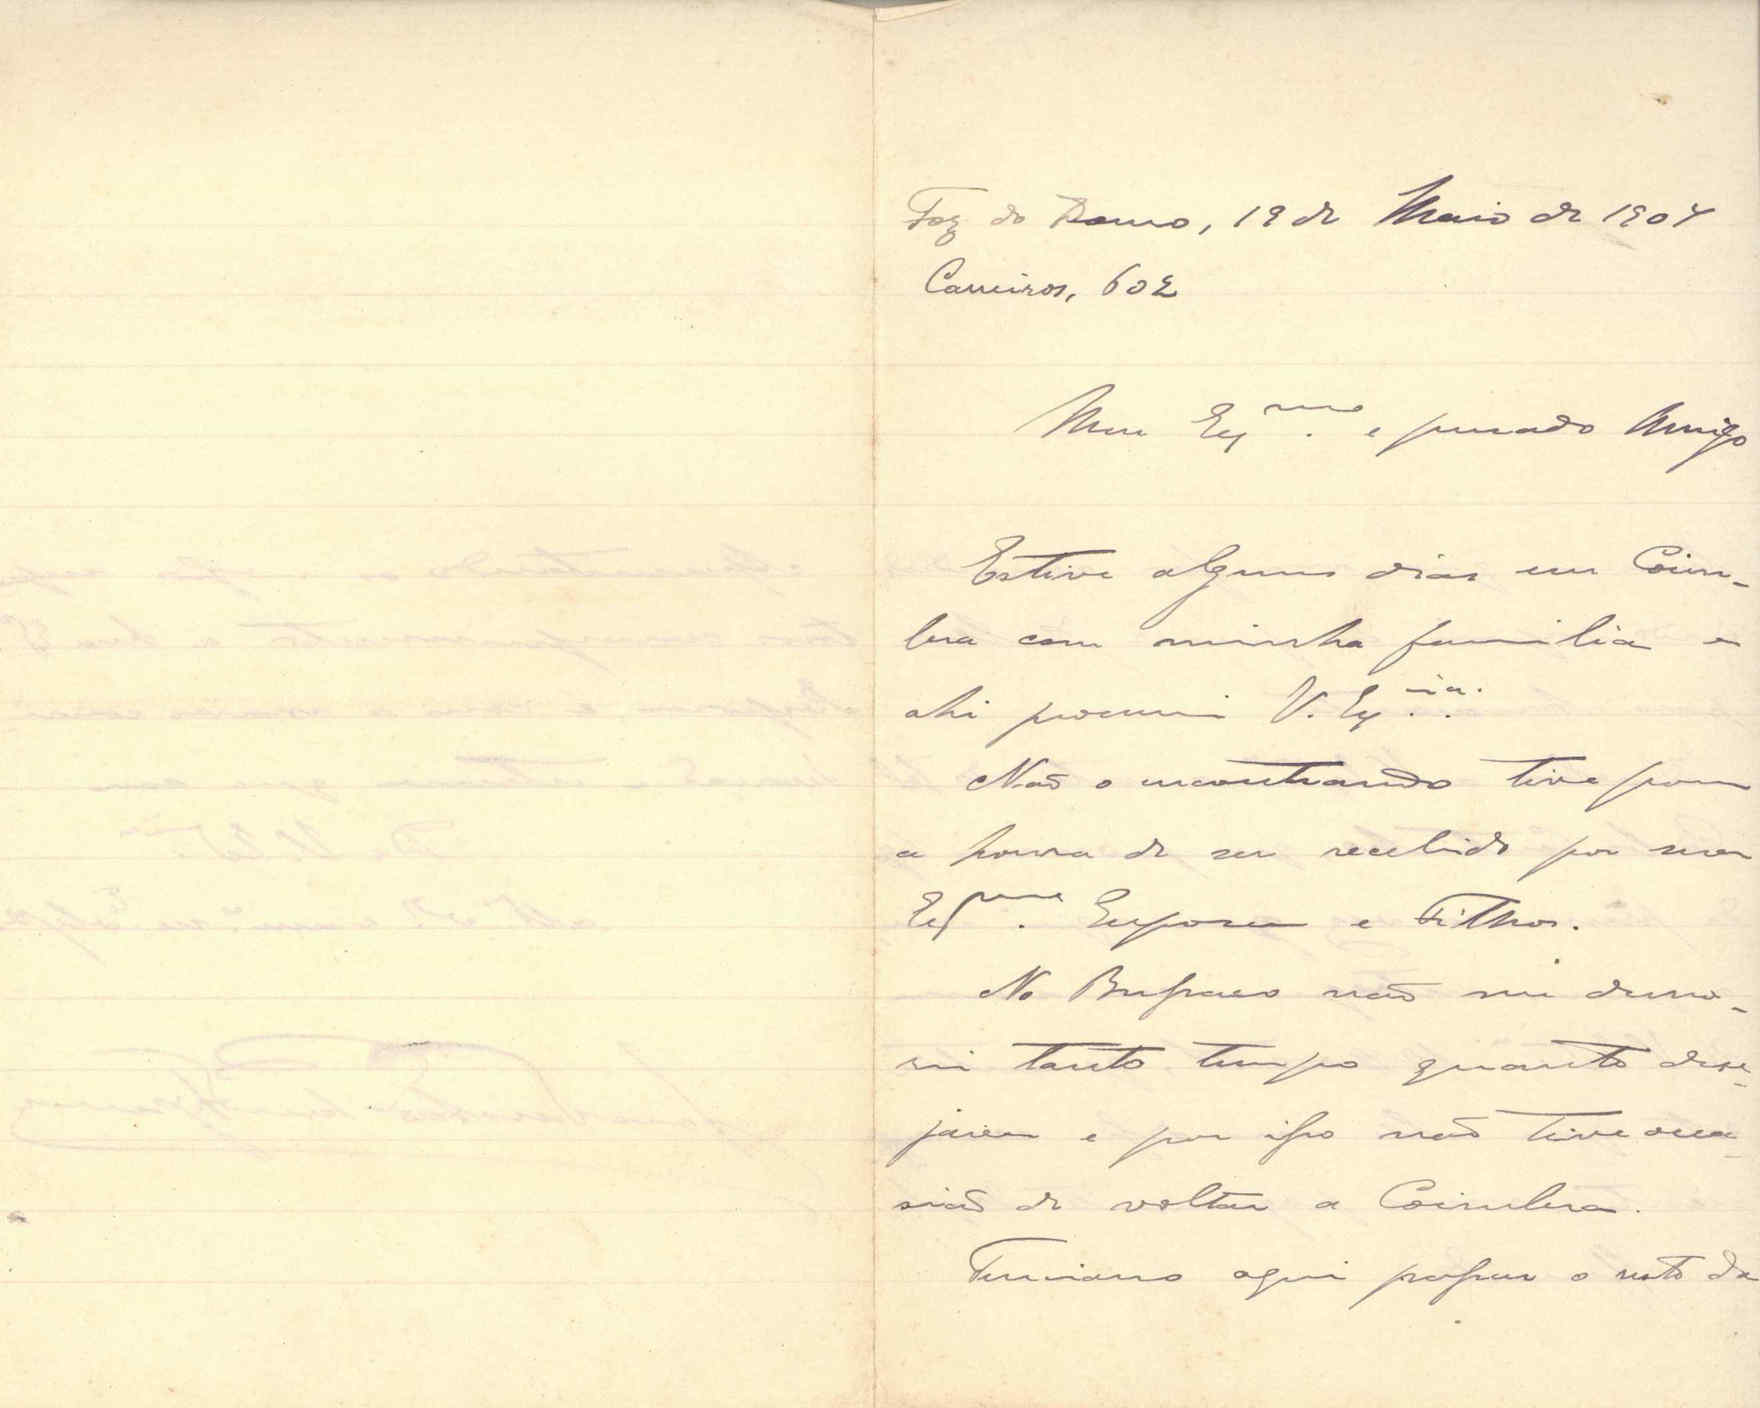 Foz do Douro, 19 de Maio de 1904
Carreiros, 602
Meu Ex.mo e prezado Amigo
Estive alguns dias em Coim-
bra com minha familia e
ahi procurei V. Ex.cia.
Não o encontrando tive porem
a honra de ser recebido por sua
Ex.ma Esposa e Filhos.
No Bussaco não me demo-
rei tanto tempo quanto dese-
java e por isso não tive occa-
sião de voltar a Coimbra.
Tenciono aqui passar o resto da